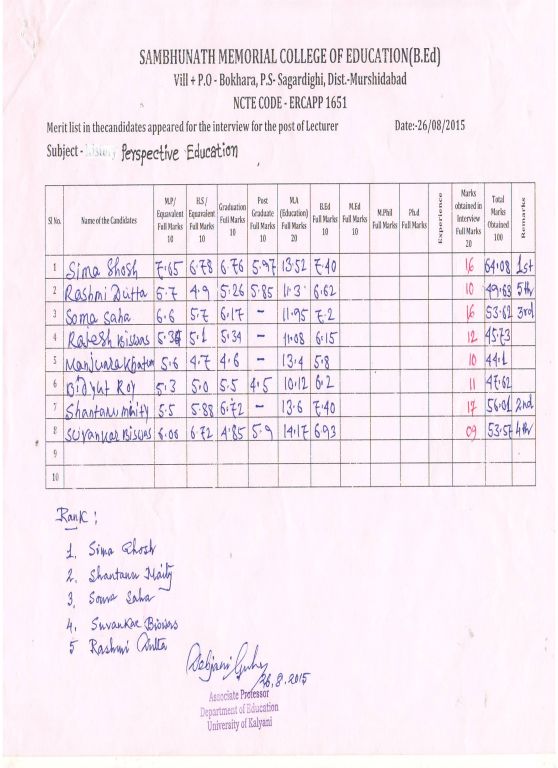 SAMBHUNATH MEMORIAL COLLEGE OF EDUCATION(B.Ed)
Vill + P.O - Bokhara, P.S- Sagardighi, Dist.-Murshidabad
NCTE CODE - ERCAPP 1651
Merit list in thecandidates appeared for the interview for the post of Lecturer Date:-26/08/2015
Subject - Perspective Education
Sl No. Name of the Candidates M.P/ Equavalent Full Marks 10 H.S / Equavalent Full Marks 10 Graduation Full Marks 10 Post Graduate Full Marks 10 M.A (Education) Full Marks 20 B.Ed Full Marks 10 M.Ed Full Marks 10 M.Phil Full Marks Ph.d Full Marks Experience Marks obtained in Interview Full Marks 20 Total Marks Obtained 100 Remarks
1 Sima Ghosh 7.65 6.78 6.76 5.97 13.52 7.40 16 64.08 1st
2 Rashmi Dutta 5.7 4.9 5.26 5.85 11.3 6.62 10 49.63 5th
3 Soma Saha 6.6 5.7 6.17 - 11.95 7.2 16 53.62 3rd
4 Ratesh Biswas 5.1 5.34 - 11.08 6.15 12 45.73
5 Manjura khatun 5.6 4.7 4.6 - 13.4 5.8 10 44.1
6 Bidyut Roy 5.3 5.0 5.5 4.5 10.12 6.2 11 47.62
7 Shantanu Maity 5.5 5.88 6.72 - 13.6 7.40 17 56.01 2nd
8 Suvankar Biswas 6.06 6.72 4.85 5.9 14.17 6.93 09 53.57 4th
9
10
Rank :
1. Sima Ghosh
2. Shantanu Maity
3. Soma Saha
4. Suvankar Biswas
5 Rashmi Dutta
Debjani Guha
26.8.2015
Associate Professor
Department of Education
University of Kalyani